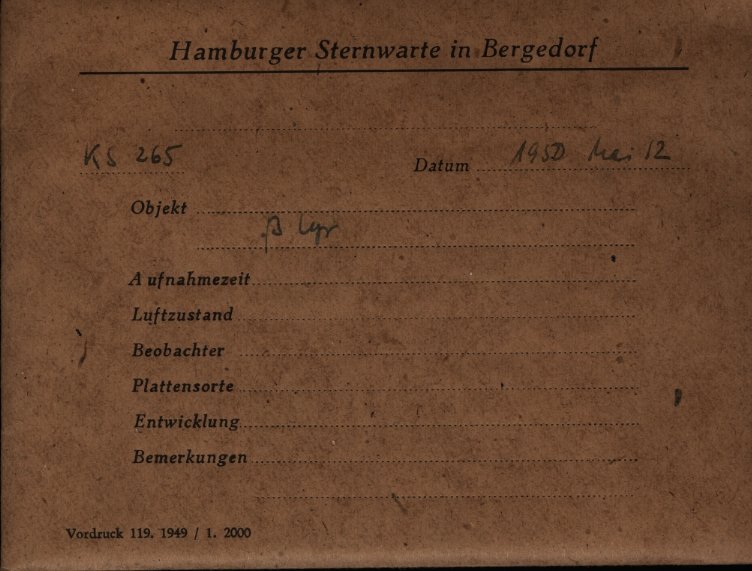 Hamburger Sternwarte in Bergedorf
KS 265
Datum 1950 Mai 12
Objekt
β Lyr
Aufnahmezeit
Luftzustand
Beobachter
Plattensorte
Entwicklung
Bemerkungen
Vordruck 119. 1949 / 1. 2000